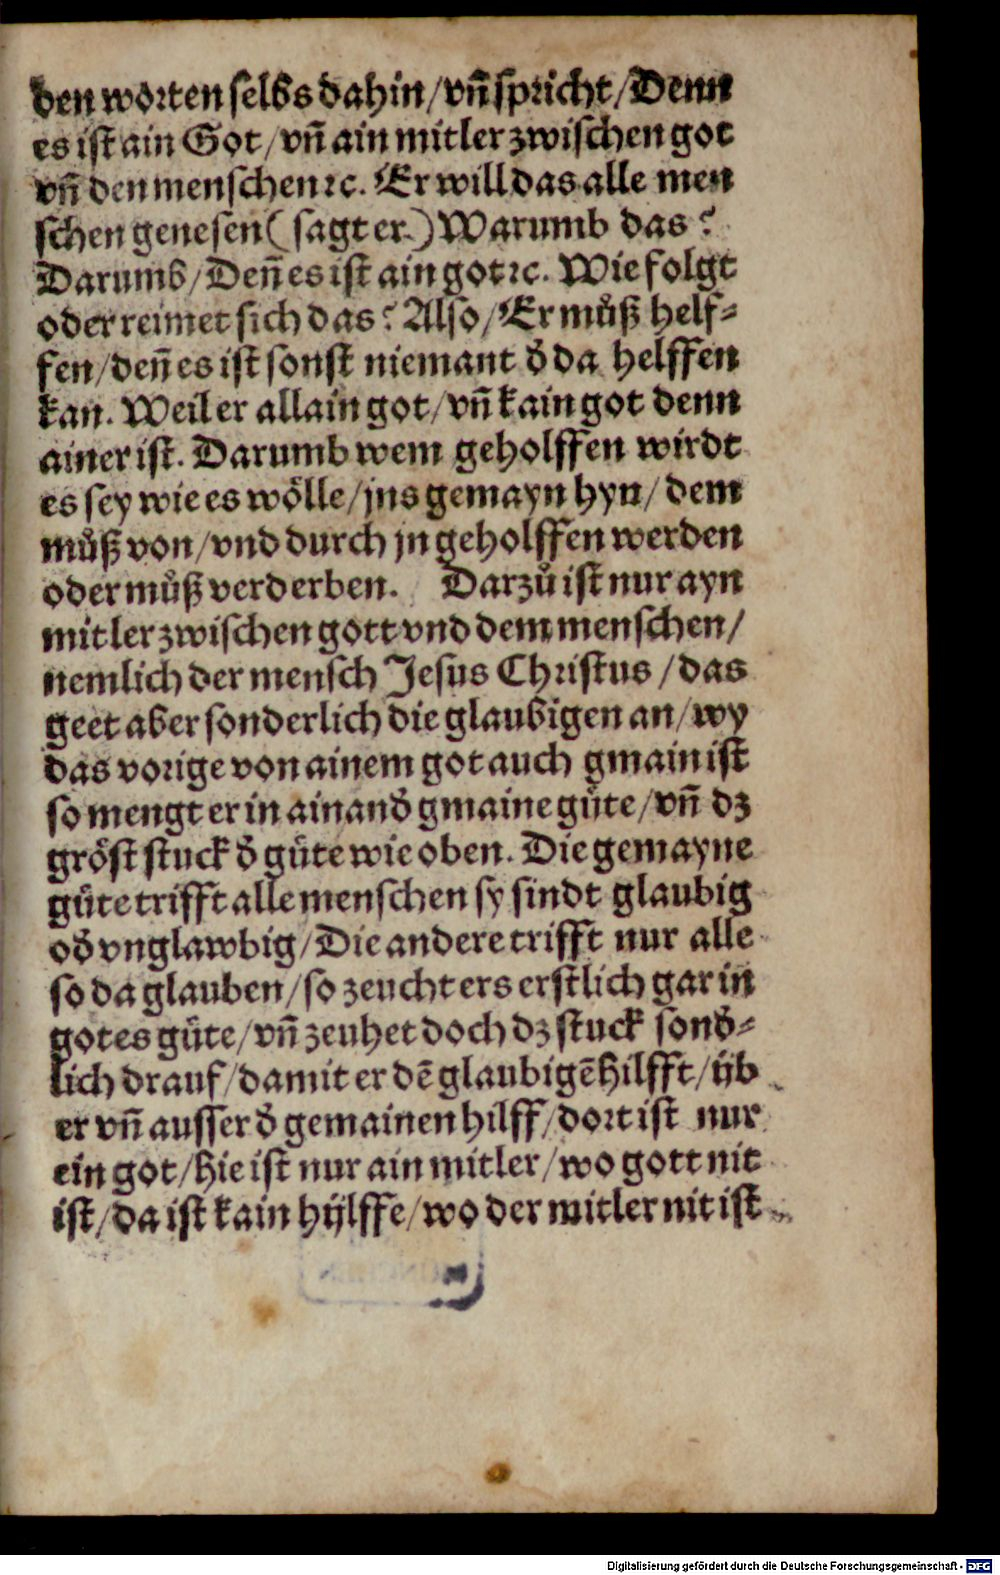 den worten selbs dahin/vñ spricht/Denn
es ist ain Got/vñ ain mitler zwischen got
vñ den menschen ꝛc. Er will das alle men
schen genesen (sagt er.) Warumb das?
Darumb/Deñ es ist ain got ꝛc. Wie folgt
oder reimet sich das? Also/Er můß helf⸗
fen/deñ es ist sonst niemant d̄ da helffen
kan. Weil er allain got/vñ kain got denn
ainer ist. Darumb wem geholffen wirdt
es sey wie es wölle/jns gemayn hyn/dem
můß von/vnd durch jn geholffen werden
oder můß verderben. Darzů ist nur ayn
mitler zwischen gott vnd dem menschen/
nemlich der mensch Jesus Christus/das
geet aber sonderlich die glaubigen an/wy
das vorige von ainem got auch gmain ist
so mengt er in ainand̄ gmaine güte/vñ dz
gröst stuck d̄ güte wie oben. Die gemayne
güte trifft alle menschen sy sindt glaubig
od̄ vnglawbig/Die andere trifft nur alle
so da glauben/so zeucht ers erstlich gar in
gotes güte/vñ zeuhet doch dz stuck sond̄⸗
lich drauf/damit er dē glaubigē hilfft/üb
er vñ ausser d̄ gemainen hilff/dort ist nur
ein got/hie ist nur ain mitler/wo gott nit
ist/da ist kain hylffe/wo der mitler nit ist
Digitalisierung gefördert durch die Deutsche Forschungsgemeinschaft - DFG